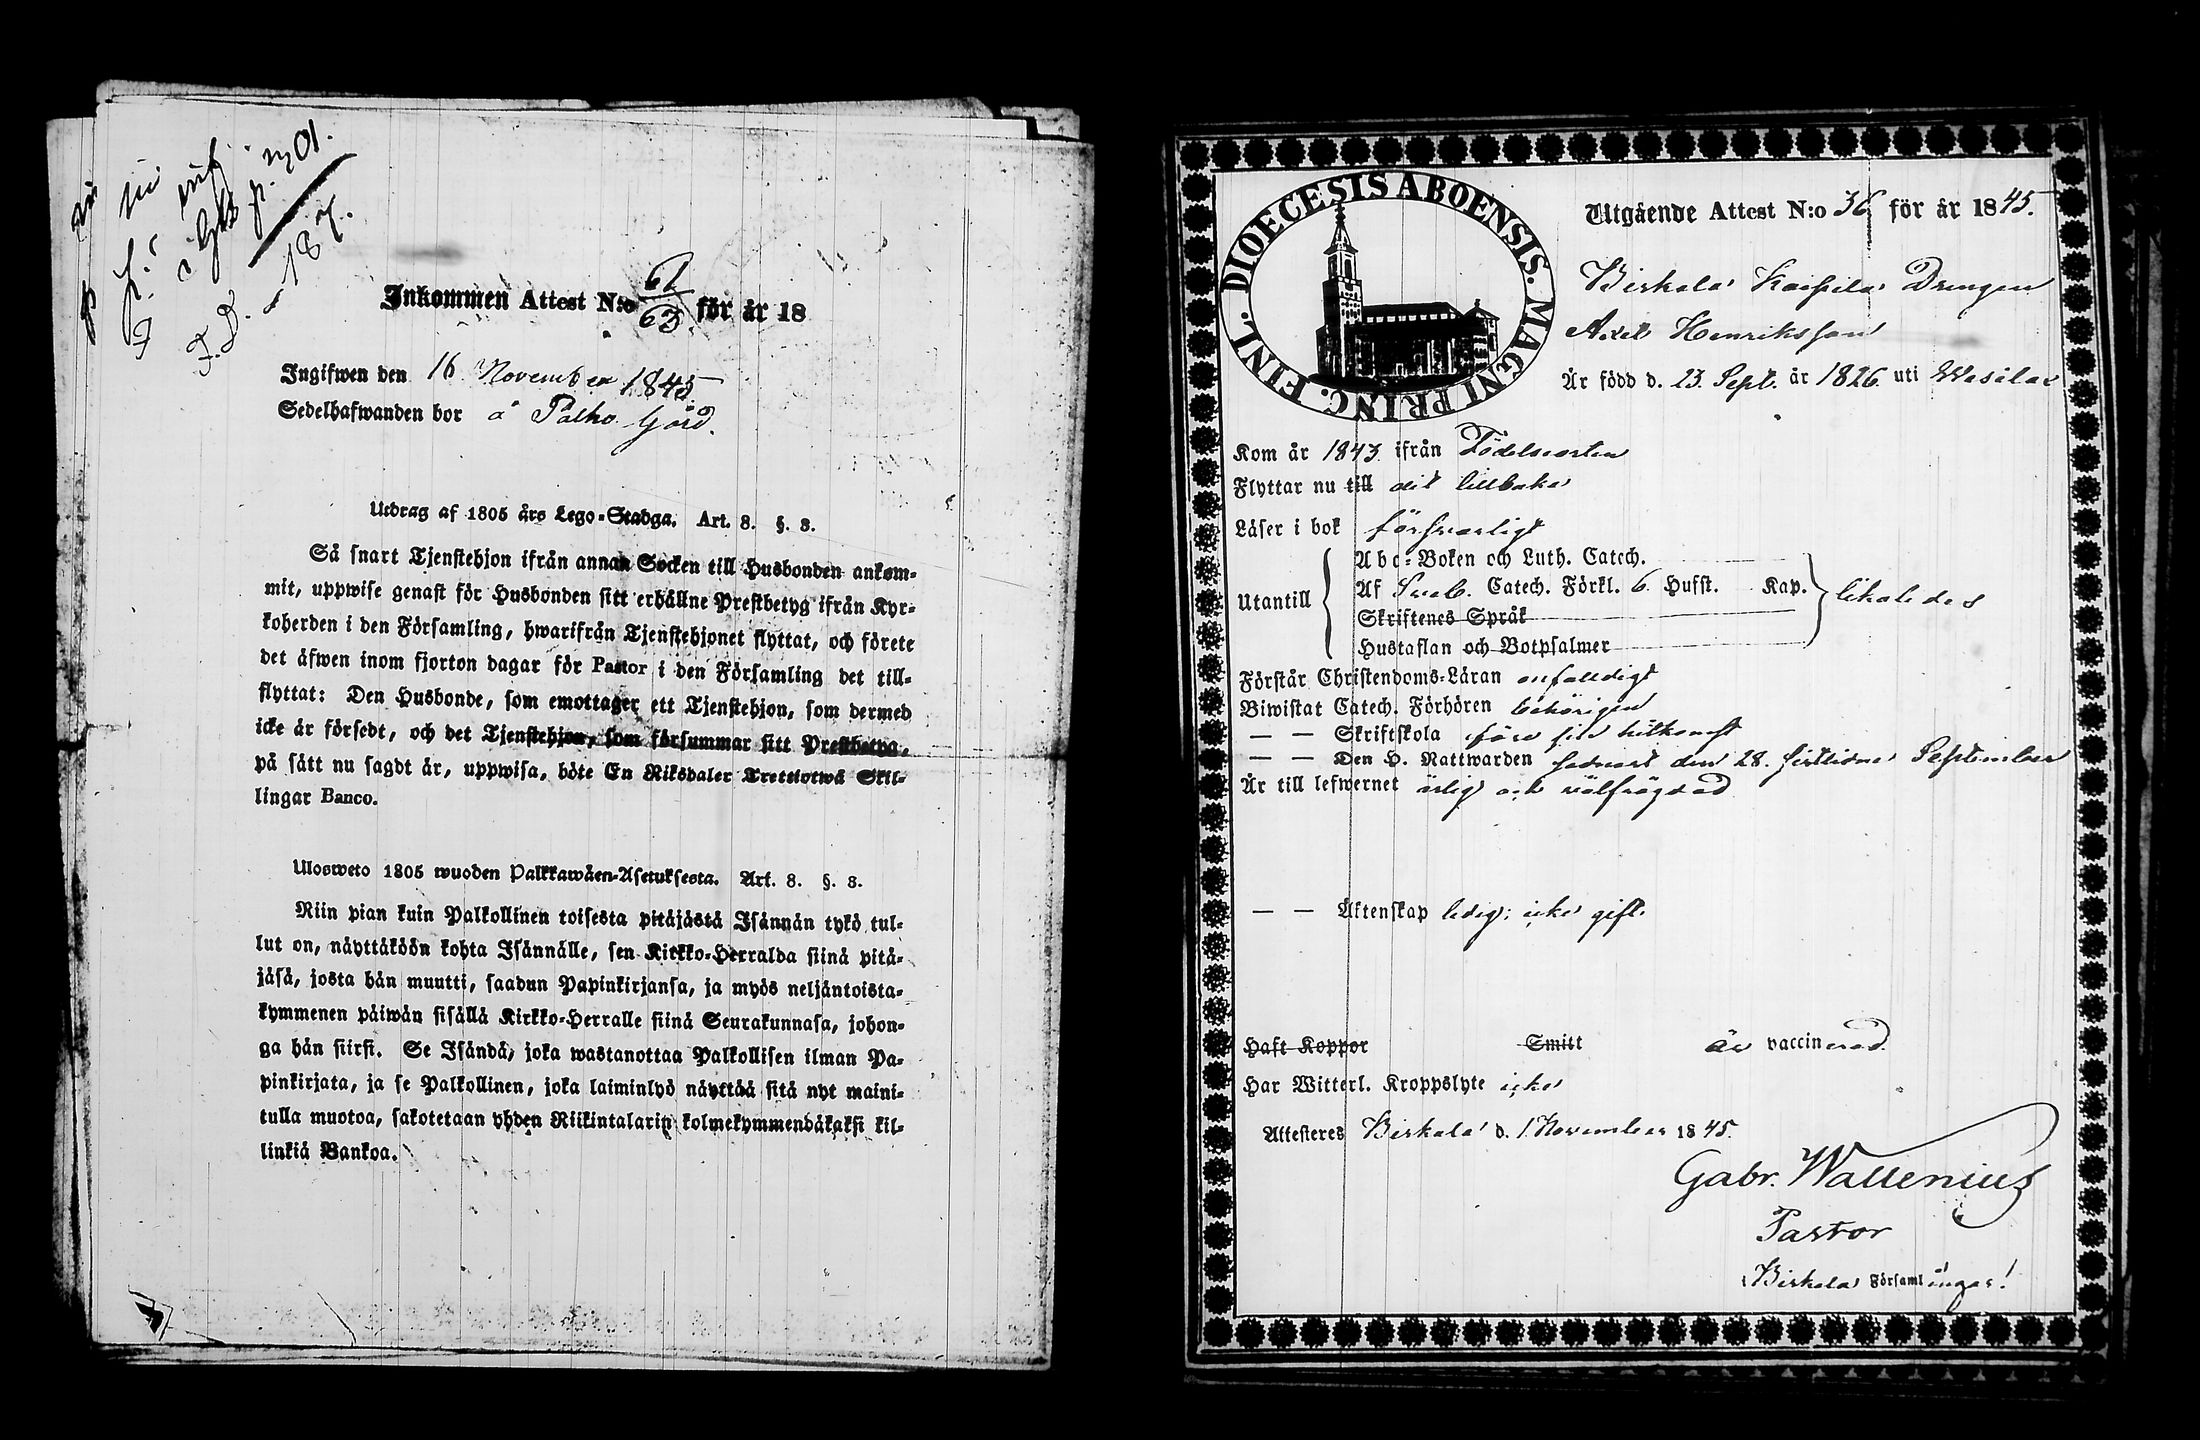 Inkommen Attest N:o 62/63. för år 18
Ingifwen den 16 November 1845
Sedelhafwanden bor å Palho Gård.
Utdrag af 1805 års Lego-Stadga. Art. 8. §. 3.
Så snart Tjenstehjon ifrån annan Socken till Husbonden ankom-
mit, uppwise genast för Husbonden sitt erhållne Prestbetyg ifrån Kyr-
koherden i den Församling, hwarifrån Tjenstehjonet flyttat, och förete
det äfwen inom fjorton dagar för Pastor i den Församling det till-
flyttat: Den Husbonde, som emottager ett Tjenstehjon, som dermed
icke är försedt, och det Tjenstehjon, som försummar sitt Prestbetyg,
på sätt nu sagdt är, uppwisa, böte En Riksdaler Trettiotwå Skil-
lingar Banco.
Ulosweto 1805 wuoden Palkkawäen-Asetuksesta. Art. 8. §. 3.
Niin pian kuin Palkollinen toisesta pitäjästä Isännän tykö tul-
lut on, näyttäköön kohta Isännälle, sen Kirkko-Herralda siinä pitä-
jäsä, josta hän muutti, saadun Papinkirjansa, ja myös neljäntoista-
kymmenen päiwän sisällä Kirkko-Herralle siinä Seurakunnasa, johon-
ga hän siirsi. Se Isändä, joka wastanottaa Palkollisen ilman Pa-
pinkirjata, ja se Palkollinen, joka laiminlyö näyttää sitä nyt maini-
tulla muotoa, sakotetaan yhden Riikintalarin kolmekymmendäkaksi kil-
linkiä Bankoa.
DIOECESIS ABOENSIS. MAGNI PRINC. FINL.
Utgående Attest N:o 36 för år 1845.
Birkala Kaipila Drängen
Axel Henriksson
Är född d. 23. Sept. år 1826 uti Wesilax
Kom år 1843 ifrån Födelseorten
Flyttar nu till dit tillbaka
Läser i bok försvarligt
Utantill
Abc-Boken och Luth. Catech.
Af Sveb. Catech. Förkl. 6 Hufst. Kap. likaledes
Skriftenes Språk
Hustaflan och Botpsalmer
Förstår Christendoms-Läran enfaldigt
Biwistat Catech. Förhören behörigen
— — Skriftskola före sin hitkomst
— — Den H. Nattwarden sednast den 28. sistlidne September
Är till lefwernet ärlig och välfrägdad
— — Äktenskap ledig; icke gift.
Haft Koppor Smitt är vaccinerad
Har Witterl. Kroppslyte icke
Attesteres Birkala d. 1 November 1845.
Gabr. Wallenius
Pastor
i Birkala Församlingar!